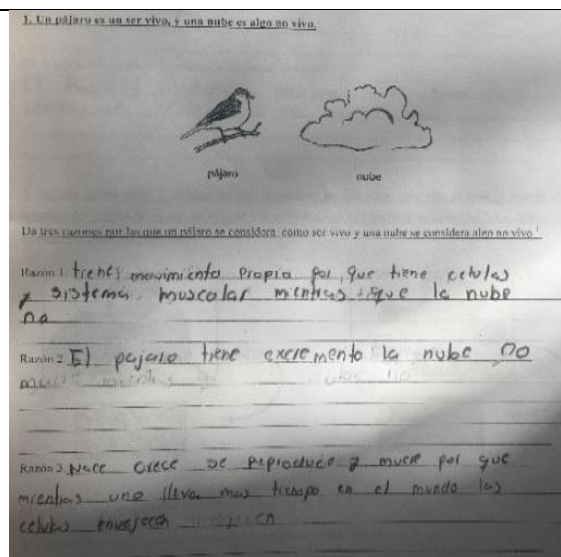 1. Un pájaro es un ser vivo, y una nube es algo no vivo.
pájaro
nube
Da tres razones por las que un pájaro se considera como ser vivo y una nube se considera algo no vivo.
Razón 1. tiene movimiento propio por que tiene celulas
y sistema muscolar mientras que la nube
no
Razón 2 El pajaro tiene excremento la nube no
Razón 3 Nace crece se reproduce y muere por que
mientras uno lleva mas tiempo en el mundo las
celulas envejecen